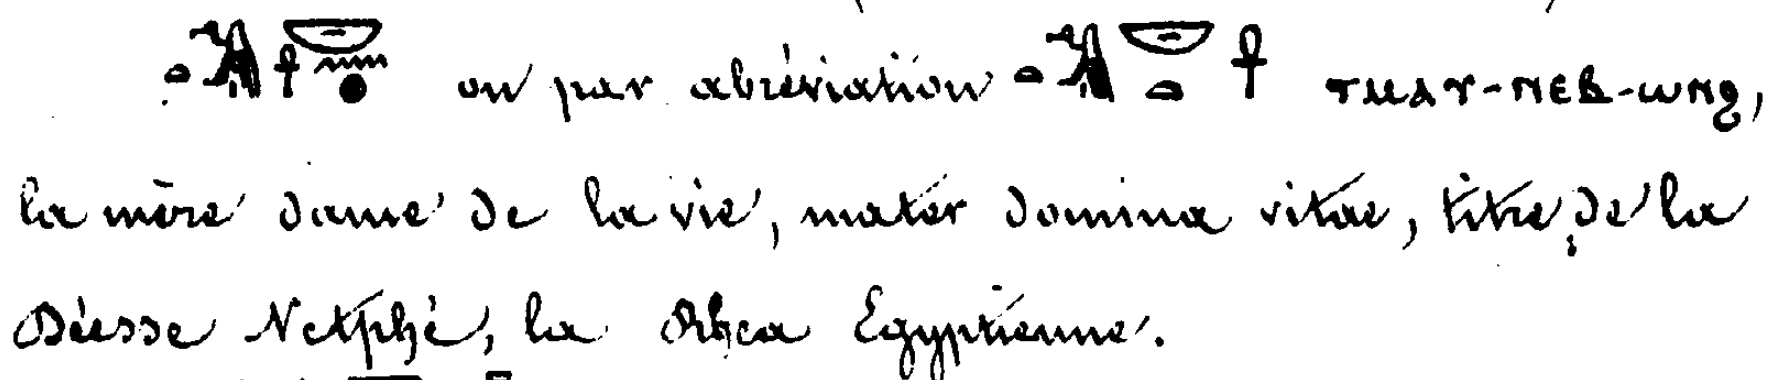 𓏏𓅐𓋹𓎟𓈖𓐍 ou par abréviation 𓏏𓅐𓎟𓏏𓋹 ⲧⲙⲁⲩ-ⲛⲉⲃ-ⲱⲛϩ,
la mère dame de la vie, mater domina vitae, titre de la
Déesse Netphé, la Rhea Egyptienne.